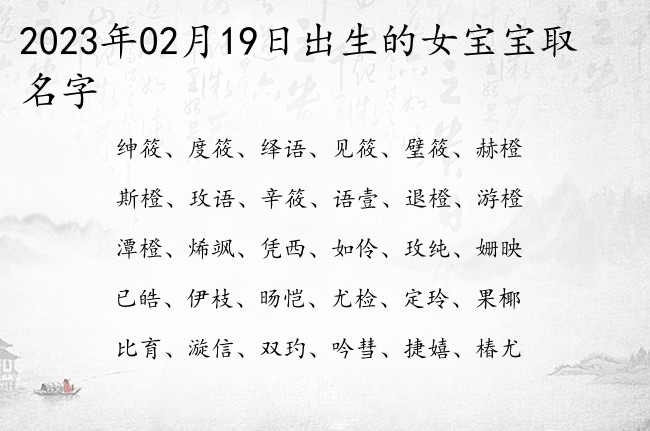 2023年02月19日出生的女宝宝取
名字
绅筱、度筱、绎语、见筱、璧筱、赫橙
斯橙、玫语、辛筱、语壹、退橙、游橙
潭橙、烯飒、凭西、如伶、玫纯、姗映
已皓、伊枝、旸恺、尤检、定玲、果椰
比育、漩信、双玓、吟彗、捷嬉、椿尤